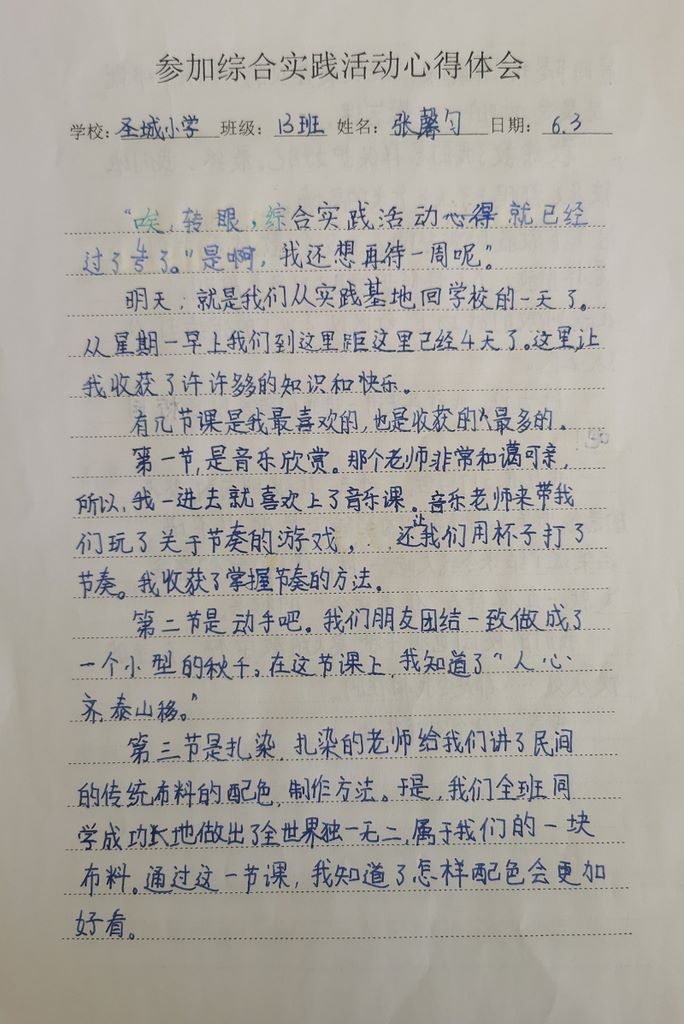 参加综合实践活动心得体会
学校：圣城小学 班级：13班 姓名：张馨匀 日期：6.3
“唉，转眼，综合实践活动心得就已经
过了了。”是啊，我还想再待一周呢”。
明天，就是我们从实践基地回学校的一天了。
从星期一早上我们到这里距这里已经4天了。这里让
我收获了许许多多的知识和快乐。
有几节课是我最喜欢的，也是收获的最多的。
第一节，是音乐欣赏。那个老师非常和蔼可亲，
所以，我一进去就喜欢上了音乐课。音乐老师来带我
们玩了关于节奏的游戏，还让我们用杯子打了
节奏。我收获了掌握节奏的方法。
第二节是动手吧。我们朋友团结一致做成了
一个小型的秋千。在这节课上，我知道了“人心
齐，泰山移。”
第三节是扎染，扎染的老师给我们讲了民间
的传统布料的配色，制作方法。于是，我们全班同
学成功地做出了全世界独一无二，属于我们的一块
布料。通过这一节课，我知道了怎样配色会更加
好看。